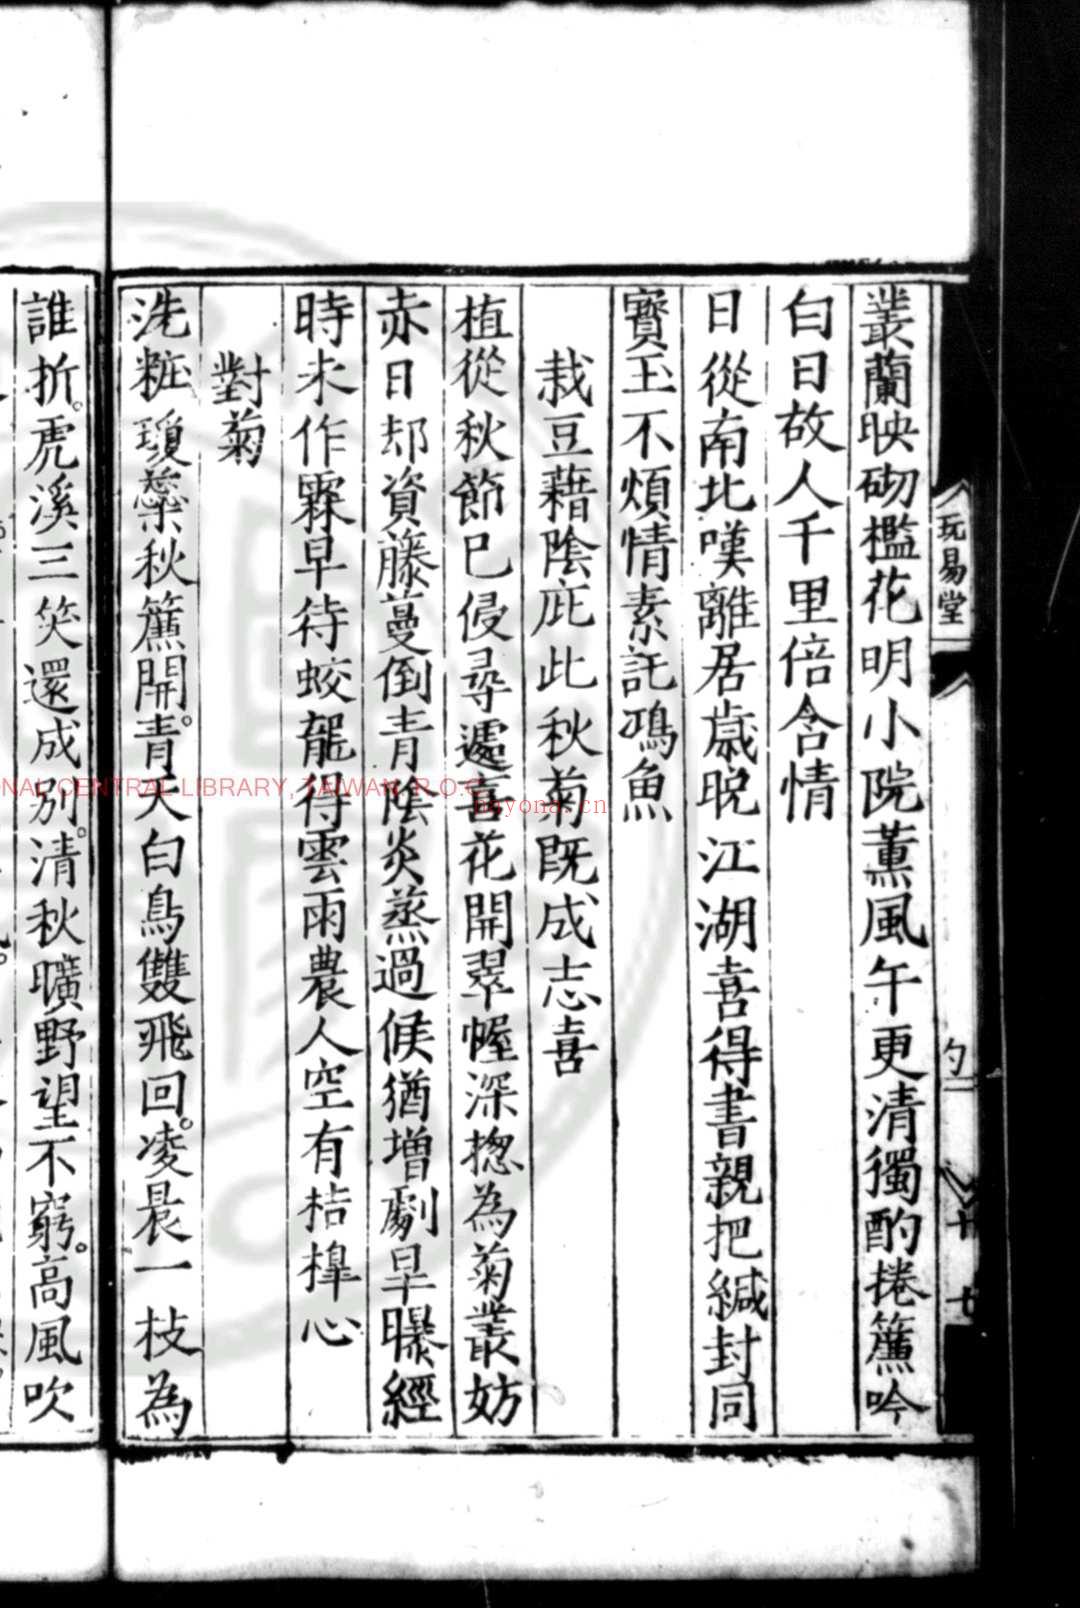 叢蘭映砌檻花明小院薰風午更清獨酌捲簾吟
白日故人千里倍含情
日從南北嘆離居歲晚江湖喜得書親把緘封同
寶玉不煩情素託鴻魚
栽豆藉陰庇此秋菊既成志喜
植從秋節已侵尋遽喜花開翠幄深揔為菊叢妨
赤日却資藤蔓倒青陰炎蒸過候猶增劇旱曝經
時未作霖早待蛟龍得雲雨農人空有桔槹心
對菊
洗粧瓊蘂秋簾開青天白鳥雙飛回凌晨一枝為
誰折虎溪三笑還成別清秋曠野望不窮高風吹
玩易堂
NAL CENTRAL LIBRARY, TAIWAN, R.O.C
noyona.cn